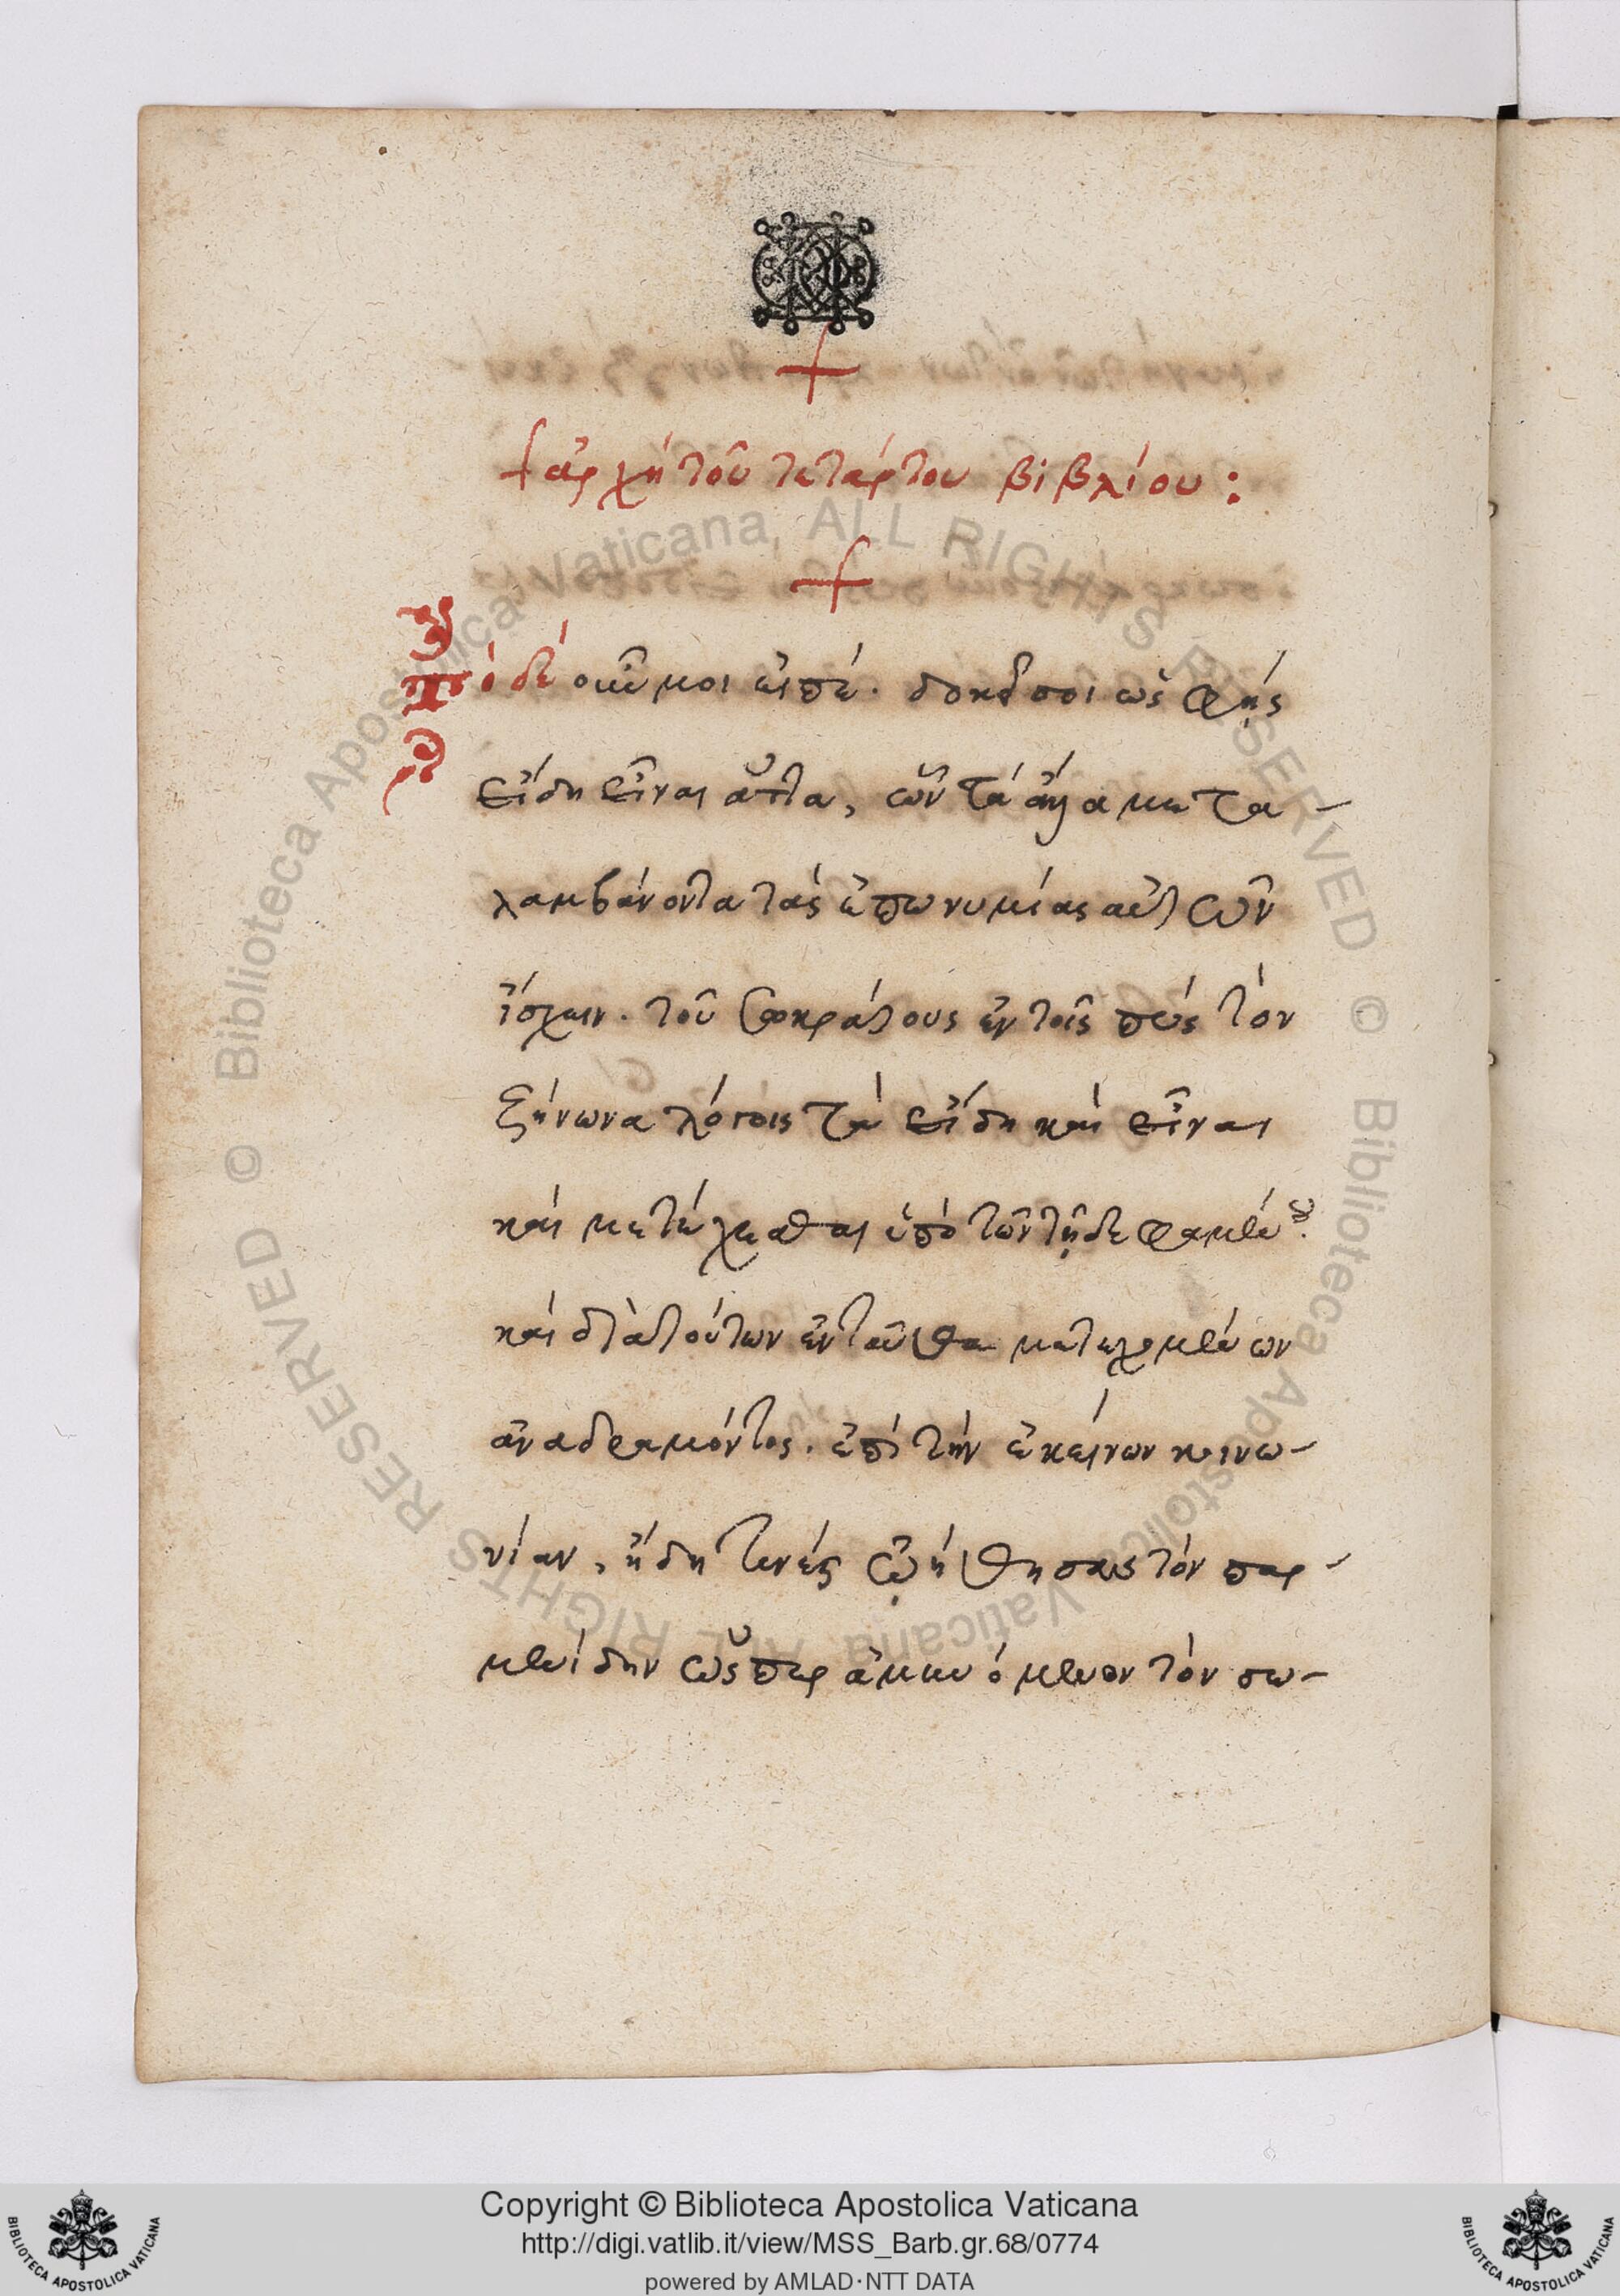 +
+ ἀρχὴ τοῦ τετάρτου βιβλίου :
+
Τόδε οὖν μοι εἰπέ. δοκεῖ σοι ὡς φῂς
εἴδη εἶναι ἄττα, ὧν τὰ ἄλλα μετα-
λαμβάνοντα τὰς ἐπωνυμίας αὐτῶν
ἴσχειν. τοῦ Σωκράτους ἐν τοῖς πρὸς τὸν
ζήνωνα λόγοις τὰ εἴδη καὶ εἶναι
καὶ μετέχεσθαι ὑπὸ τῶν τῇδε φαμένου.
καὶ διὰ τούτων ἐνταῦθα μετεχομένων
ἀναδραμόντος. ἐπὶ τὴν ἐκείνων κοινω-
νίαν, ἤδη τινὲς ᾠήθησαν τὸν παρ-
μενίδην ὥσπερ ἀμυνόμενον τὸν σω-
Copyright © Biblioteca Apostolica Vaticana
http://digi.vatlib.it/view/MSS_Barb.gr.68/0774
powered by AMLAD·NTT DATA
BIBLIOTECA APOSTOLICA VATICANA
BIBLIOTECA APOSTOLICA VATICANA
© Biblioteca Apostolica Vaticana, ALL RIGHTS RESERVED
© Biblioteca Apostolica Vaticana ALL RIGHTS RESERVED